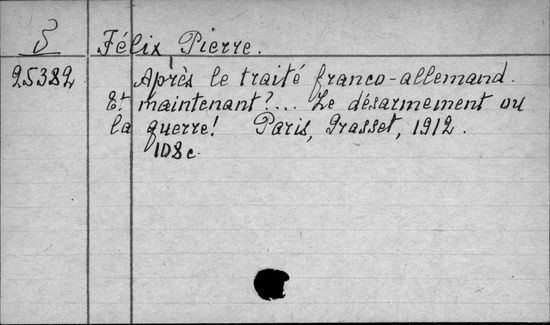 Félix Pierre.
25382 Après le traité franco-allemand.
Et maintenant?... Le désarmement ou
la guerre! Paris, Grasset, 1912.
108c.